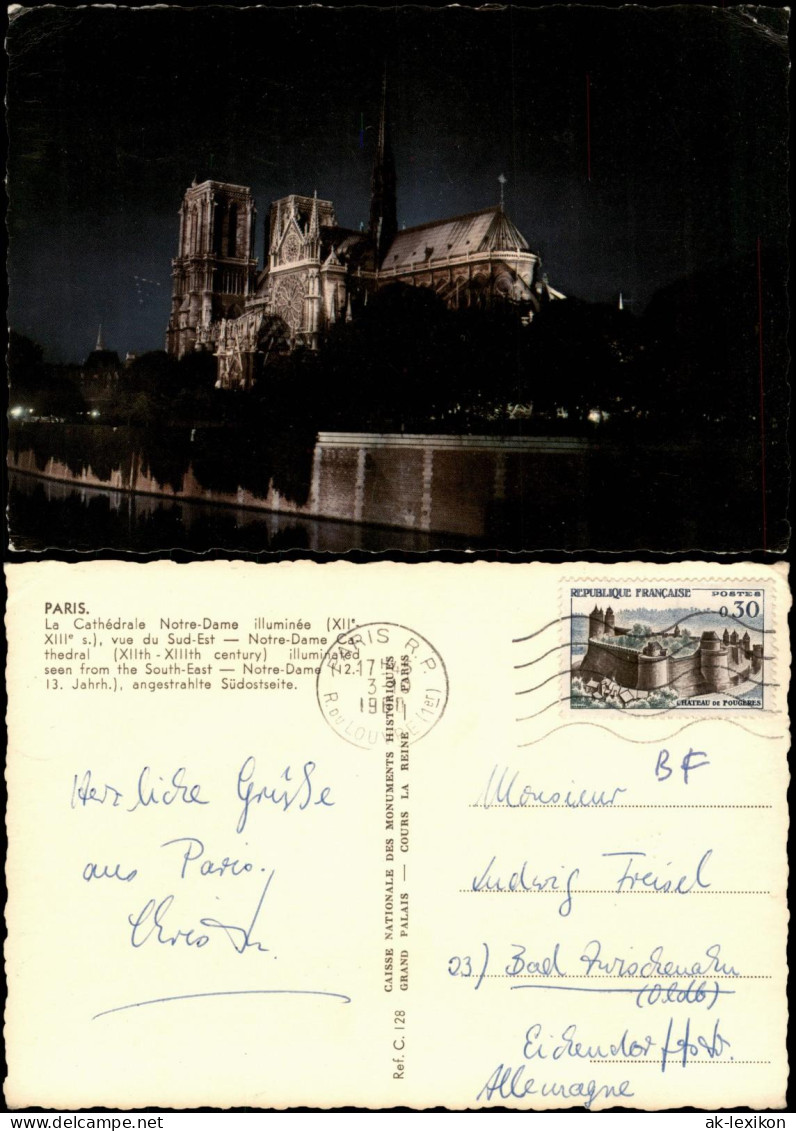 PARIS.
La Cathédrale Notre-Dame illuminée (XIIe-
XIIIe s.), vue du Sud-Est — Notre-Dame Ca-
thedral (XIIth - XIIIth century) illuminated
seen from the South-East — Notre-Dame (12.-
13. Jahrh.), angestrahlte Südostseite.
PARIS R.P.
R. DU LOUVRE (1er)
REPUBLIQUE FRANÇAISE POSTES
0,30
CHATEAU DE FOUGERES
Herzliche Grüße
aus Paris.
CAISSE NATIONALE DES MONUMENTS HISTORIQUES
GRAND PALAIS — COURS LA REINE — PARIS
Ref. C. 128
BF
Monsieur
Ludwig Freisel
23) Bad Zwischenahn
(Oldb)
Allemagne
ansichtskarten-lexikon.de
ak-lexikon